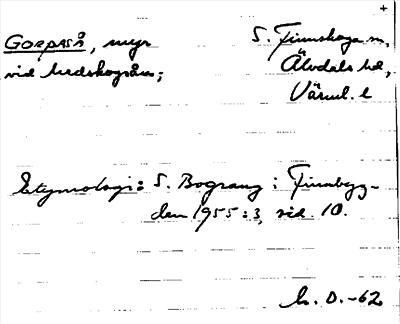 +
GORPASÅ, myr
vid Medskogsån;
S. Finnskoga sn,
Älvdals hd,
Värml. l
Etymologi: S. Bograng i Finnbyg-
den 1955:3, sid. 10.
D.-62